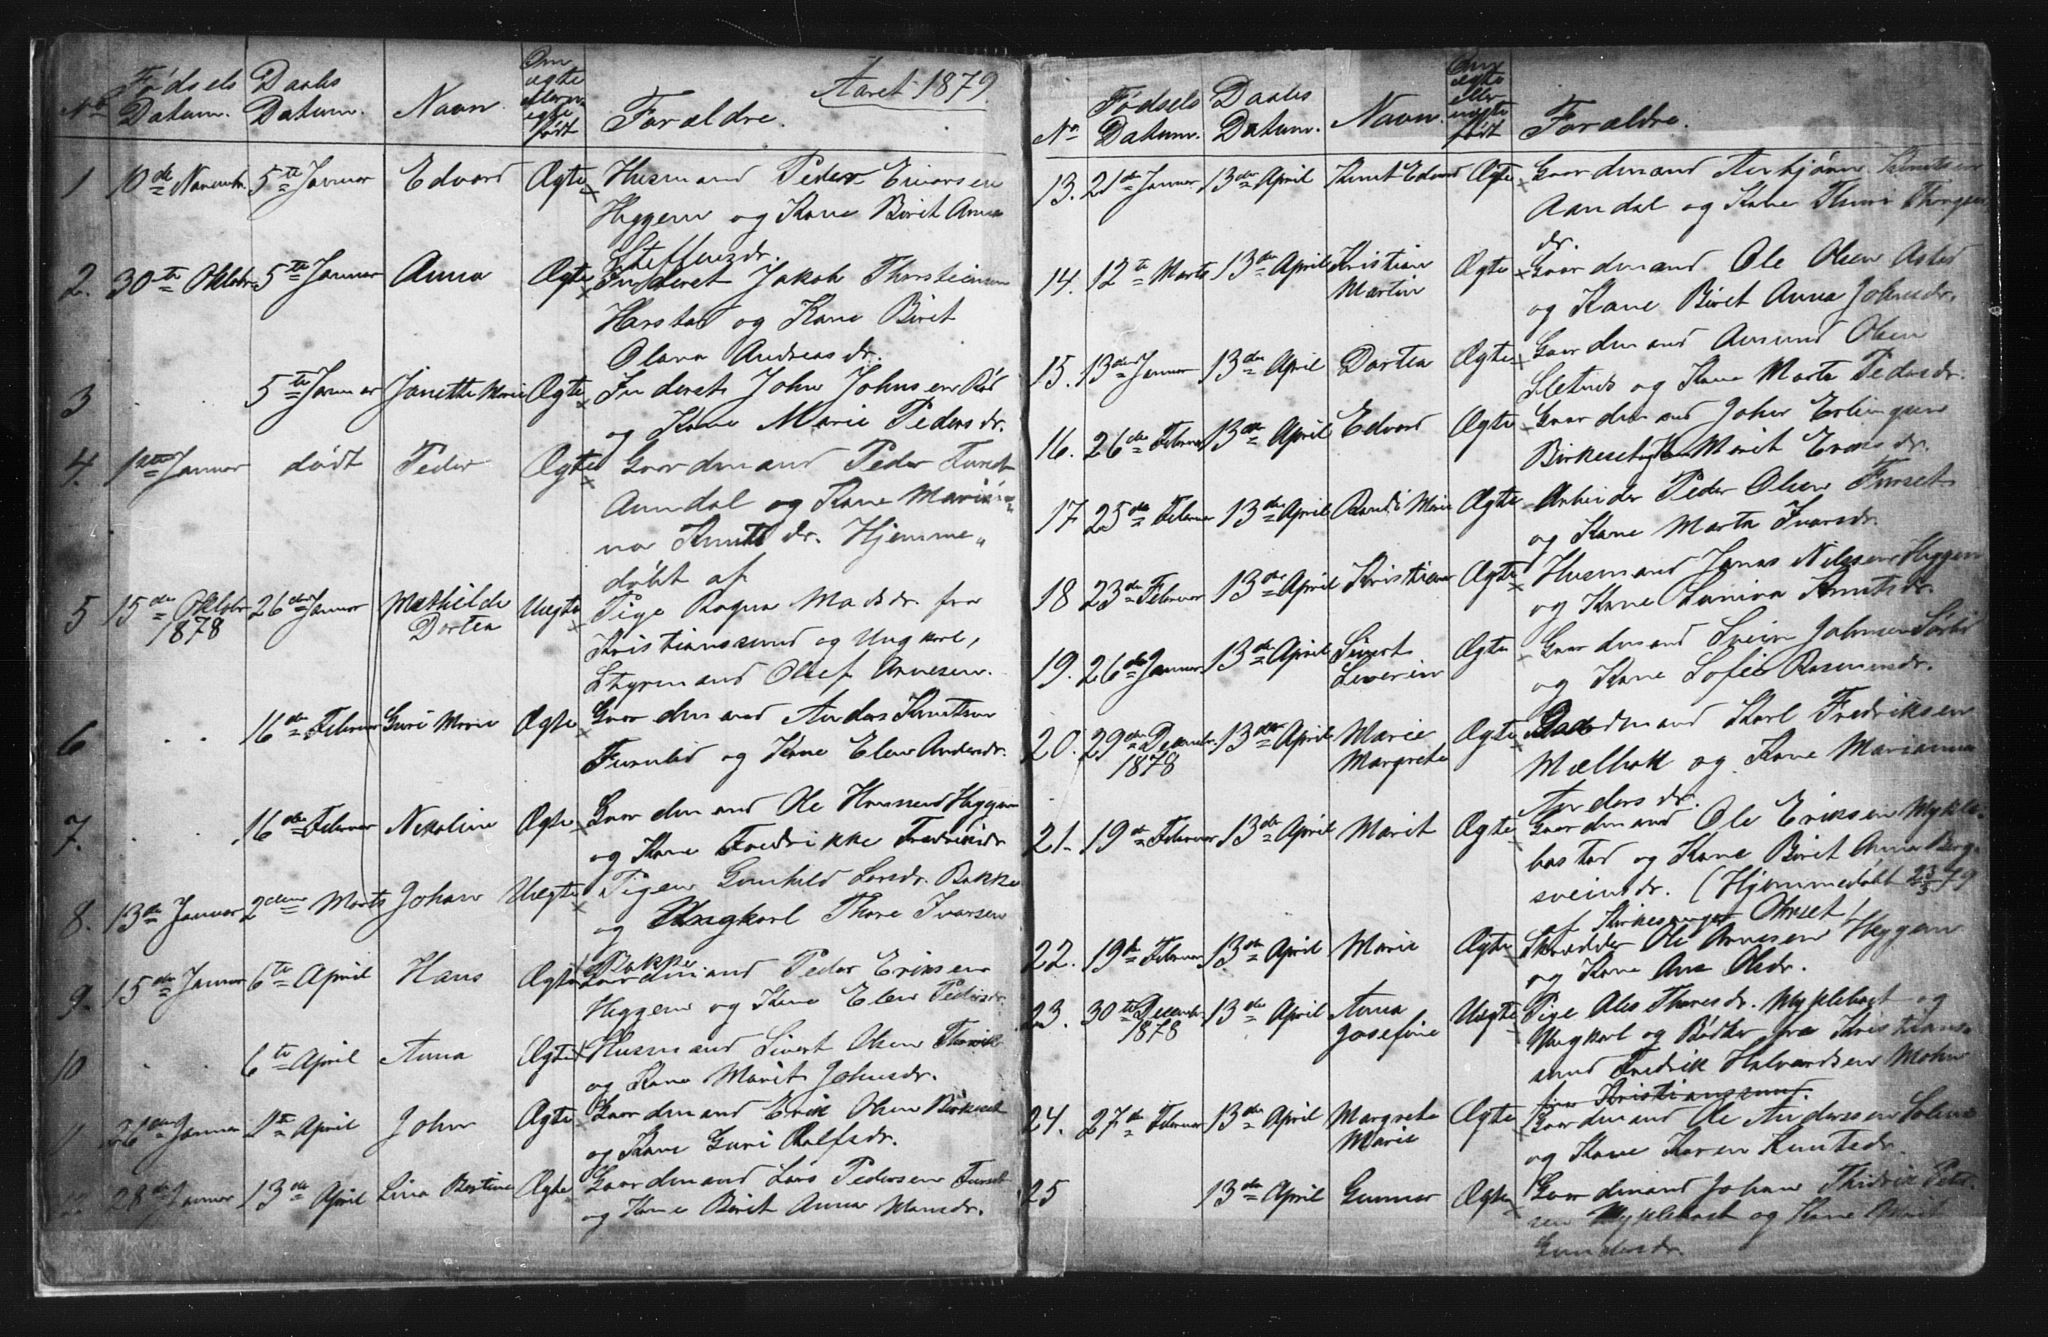 Aaret 1879
No Fødsels Datum. Daabs Datum. Navn. Om ægte eller uægte født Forældre.
1 10de Novembr. 5te Januar Edvard Ægte Husmand Peder Einarsen
Heggem og Kone Birit Anna
Steffensdr.
2. 30te Oktobr. 5te Januar Anna Ægte Inderst Jakob Thorsteinsen
Harstad og Kone Birit
Olava Andreasdr.
3 5te Januar Janette Marie Ægte Inderst John Johnsen Rød
og Kone Marie Pedersdr.
4. 1ste Januar død Peder Ægte Gaardmand Peder Furset
Aandal og Kone Marian-
na Knutsdr. Hjemme-
døbt af
5 15de Oktobr. 1878 26de Januar Mathilde Dortea Uægte Pige Ragna Madsdr. fra
Kristianssund og Ungkarl,
Styrmand Olaf Arnesen.
6 16de Februar Guri Marie Ægte Gaardmand Anders Knutsen
Furulid og Kone Elen Andersdr.
7. 16de Februar Nekoline Ægte Gaardmand Ole Hansen Heggem
og Kone Fredrikke Fredriksdr.
8. 13de Januar 2den Marts Johan Uægte Pigen Gunhild Larsdr. Bakke
og Ungkarl Thore Ivarsen
Bakke
9. 15de Januar 6te April Hans Ægte Gaardmand Peder Eriksen
Heggem og Kone Elen Pedersdr.
10 6te April Anna Ægte Husmand Sivert Olsen
og Kone Marit Johnsdr.
11 26de Januar April John Ægte Gaardmand Erik Olsen Birkeset
og Kone Guri Rolfsdr.
12. 28de Januar 13de April Lina Bertine Ægte Gaardmand Lars Pedersen Furset
og Kone Birit Anna Hansdr.
No Fødsels Datum. Daabs Datum. Navn. Om ægte eller uægte født Forældre.
13. 21de Januar 13de April Knut Edvard Ægte Gaardmand Knutsen
Aandal og Kone
dr.
14. 12te Marts 13de April Kristian Martin Ægte Gaardmand Ole Olsen
og Kone Birit Anna Johnsdr.
15. 13de Januar 13de April Dortea Ægte Gaardmand Amund Olsen
og Kone Marta Pedersdr.
16. 26de Februar 13de April Edvard Ægte Gaardmand John Erlingsen
Birkeset Marit Eriksdr.
17 25de Februar 13de April Randi Marie Ægte Arbeider Peder Olsen Furset
og Kone Marta Ivarsdr.
18 23de Februar 13de April Kristian Ægte Husmand Jonas Nilssen Heggem
og Kone Lavina Knutsdr.
19. 26de Januar 13de April Sivert Severin Ægte Gaardmand Svein Johnsen Sørlid
og Kone Sofie Rasmusdr.
20. 29de Decembr. 1878 13de April Marie Margrete Ægte Gaardmand Karl Fredriksen
Mælbak og Kone Marianna
Andersdr.
21. 19de Februar 13de April Marit Ægte Gaardmand Ole Eriksen Mykle-
bostad og Kone Birit Anna Berg-
sveinsdr. (Hjemmedøbt 23/3 79
af Kirkesanger Ohrset)
22. 19de Februar 13de April Marie Ægte Skrædder Ole Arnesen Heggem
og Kone Ane Olsdr.
23. 30te Decembr. 1878 13de April Anna Josefine Uægte Pige Ales Thoresdr. Myklebost og
Ungkarl og Bødker fra Kristians-
sund Fredrik Halvardsen Mohn
fra Kristianssund.
24. 27de Februar 13de April Margrete Marie Ægte Gaardmand Ole Anderssen Solem
og Kone Karen Knutsdr.
25 13de April Gunnar Ægte Gaardmand Johan Thidrik Peter-
sen Myklebost og Kone
Gundersdr.